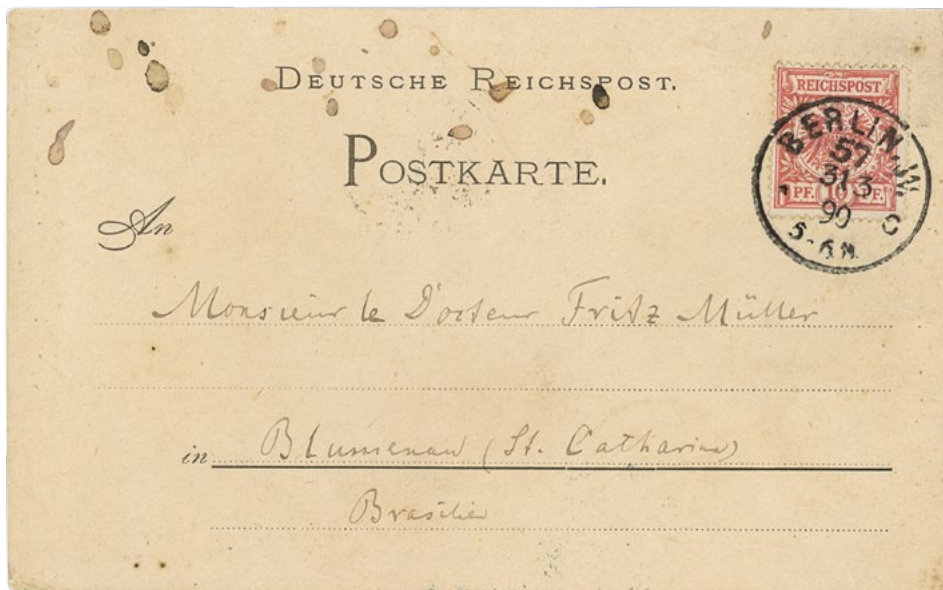 DEUTSCHE REICHSPOST.
REICHSPOST
10 PF.
BERLIN, W.
57
31 3
90
5-6N.
POSTKARTE.
An
Monsieur le Docteur Fritz Müller
in Blumenau (St. Catharina)
Brasilien